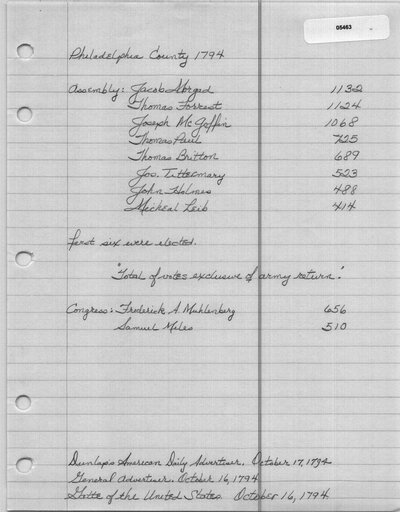 05463
Philadelphia County 1794
Assembly: Jacob Morgad 1132
Thomas Forrest 1124
Joseph McGoffin 1068
Thomas Paul 725
Thomas Britton 689
Jos. Tittermary 523
John Holmes 488
Micheal Leib 414
First six were elected.
"Total of votes exclusive of army return".
Congress: Frederick A Muhlenberg 656
Samuel Miles 510
Dunlaps American Daily Advertiser. October 17, 1794
General Advertiser. October 16, 1794
Gztte of the United States. October 16, 1794